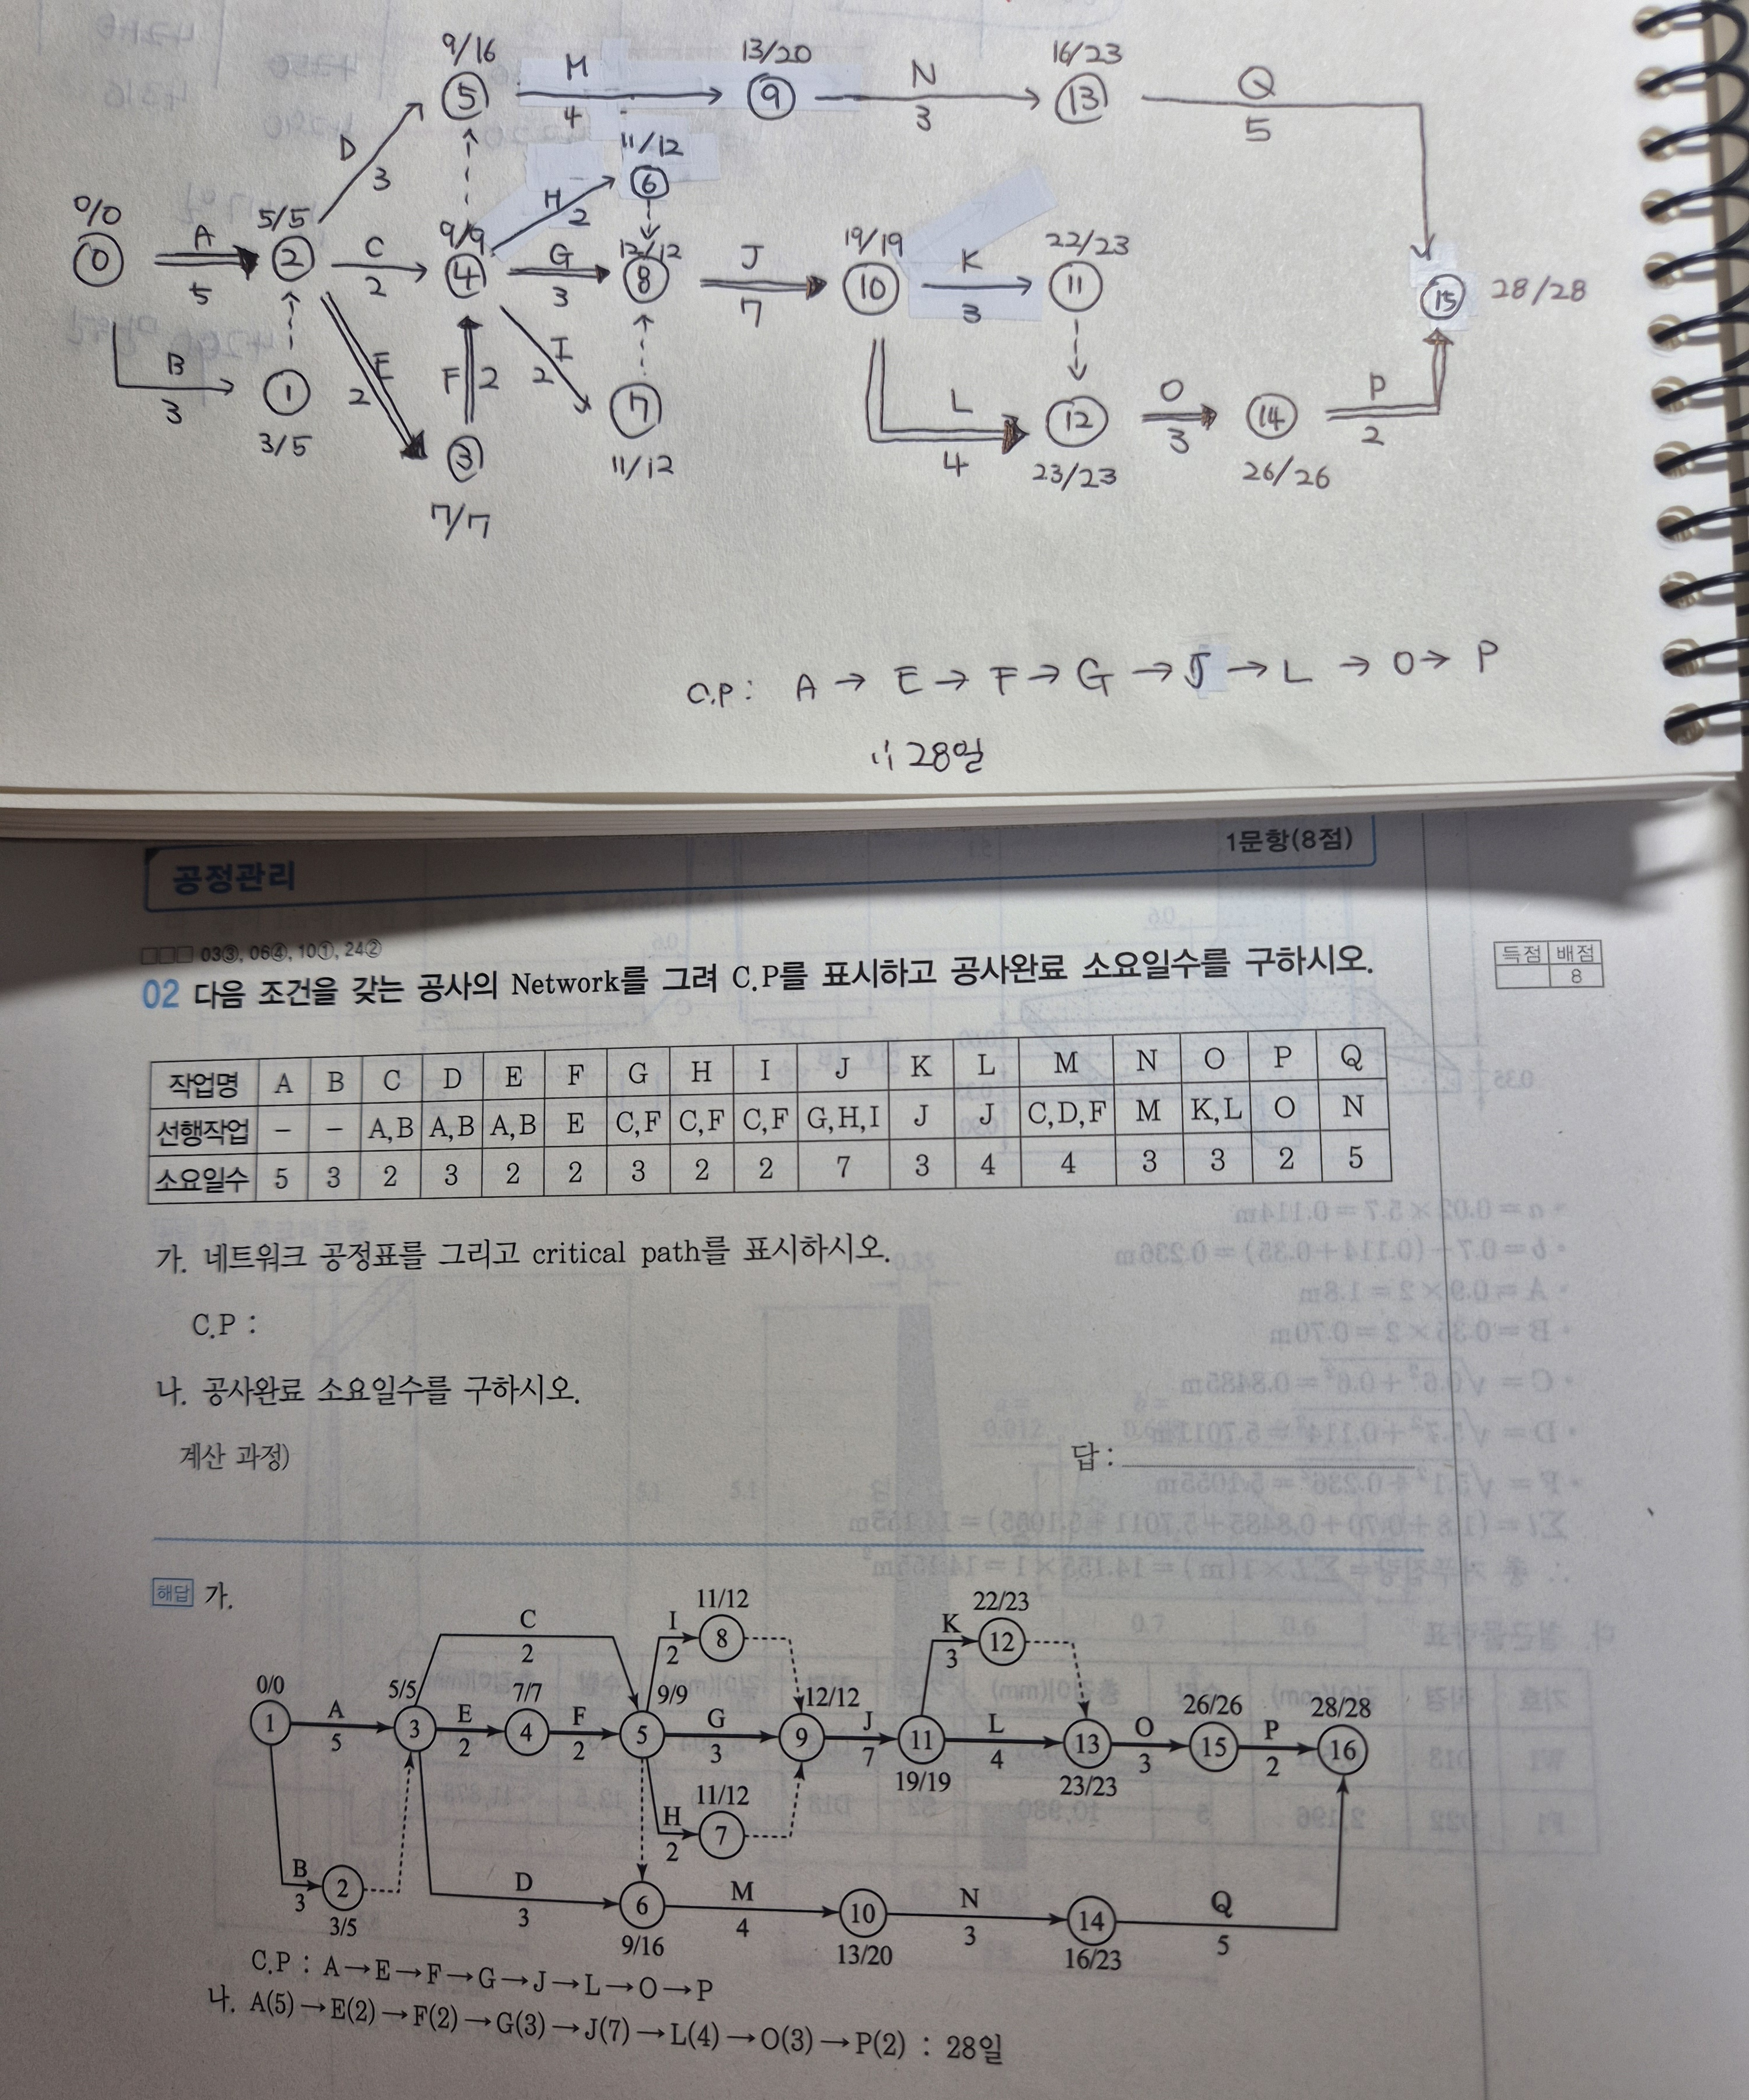 9/16 M 13/20 N 16/23 Q
5 4 9 3 13 5
D 3 11/12
H 2 6
0/0 A 5/5 C 9/9 G 12/12 J 19/19 K 22/23
0 5 2 2 4 3 8 7 10 3 11 15 28/28
B E F 2 I L O P
3 1 2 2 7 4 12 3 14 2
3/5 3 11/12 23/23 26/26
7/7
C.P : A → E → F → G → J → L → O → P
∴ 28일
공정관리 1문항(8점)
□□□ 03③, 06④, 10①, 24②
02 다음 조건을 갖는 공사의 Network를 그려 C.P를 표시하고 공사완료 소요일수를 구하시오.
득점 배점
8
작업명 A B C D E F G H I J K L M N O P Q
선행작업 - - A,B A,B A,B E C,F C,F C,F G,H,I J J C,D,F M K,L O N
소요일수 5 3 2 3 2 2 3 2 2 7 3 4 4 3 3 2 5
가. 네트워크 공정표를 그리고 critical path를 표시하시오.
C.P :
나. 공사완료 소요일수를 구하시오.
계산 과정) 답 :
해답 가.
11/12 22/23
C I 8 K 12
2 2 3
0/0 5/5 7/7 9/9 12/12 26/26 28/28
1 A 3 E 4 F 5 G 9 J 11 L 13 O 15 P 16
5 2 2 3 7 4 3 2
11/12 19/19 23/23
H 7
2
B 2 D 6 M 10 N 14 Q
3 3 4 3 5
3/5 9/16 13/20 16/23
C.P : A→E→F→G→J→L→O→P
나. A(5)→E(2)→F(2)→G(3)→J(7)→L(4)→O(3)→P(2) : 28일